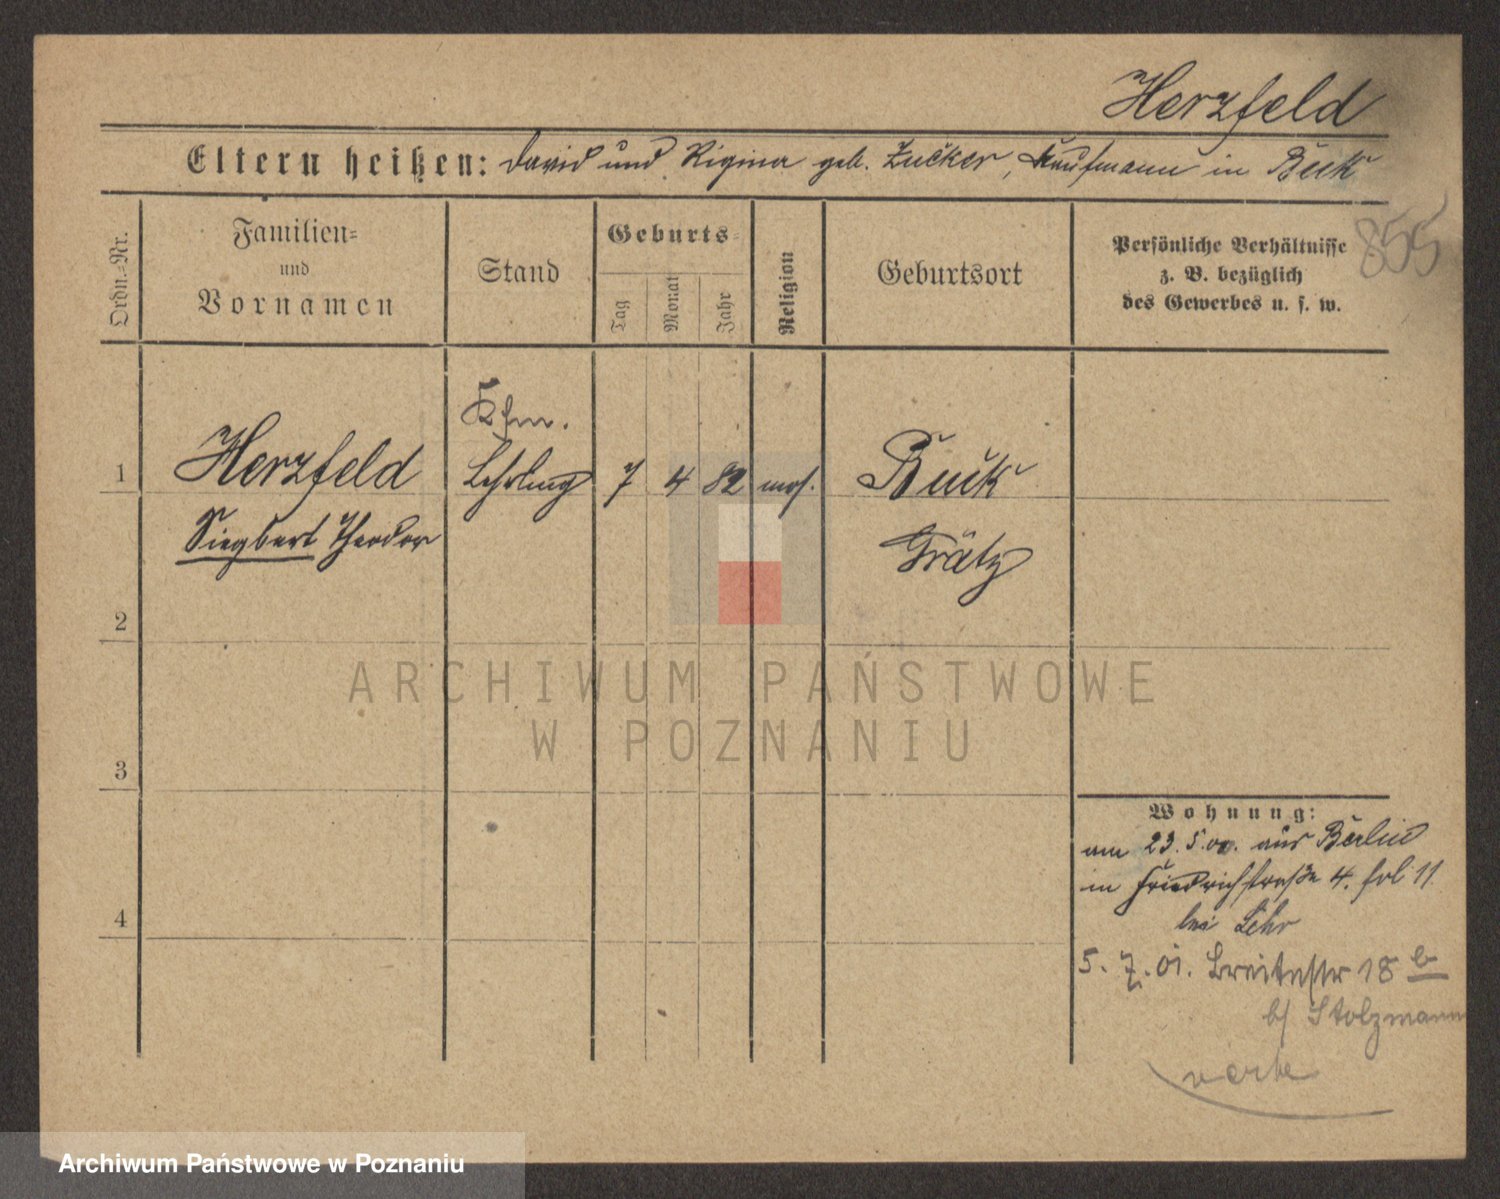 Herzfeld
Eltern heißen: David und Rigina geb. Zucker, Kaufmann in Buk
855
Ordn.=Nr.
Familien=
und
Vornamen
Stand
Geburts=
Tag
Monat
Jahr
Religion
Geburtsort
Persönliche Verhältnisse
z. B. bezüglich
des Gewerbes u. s. w.
Kfm.
1 Herzfeld Lehrling 7 4 82 mos. Buck
Siegbert Theodor Grätz
2
ARCHIWUM PAŃSTWOWE
W POZNANIU
3
Wohnung:
am 23. 5. 00. aus Berlin
in Friedrichstraße 4. fol 11
bei Lehr
4
5. 7. 01. Breitestr 18 b
b/ Stolzmann
Archiwum Państwowe w Poznaniu